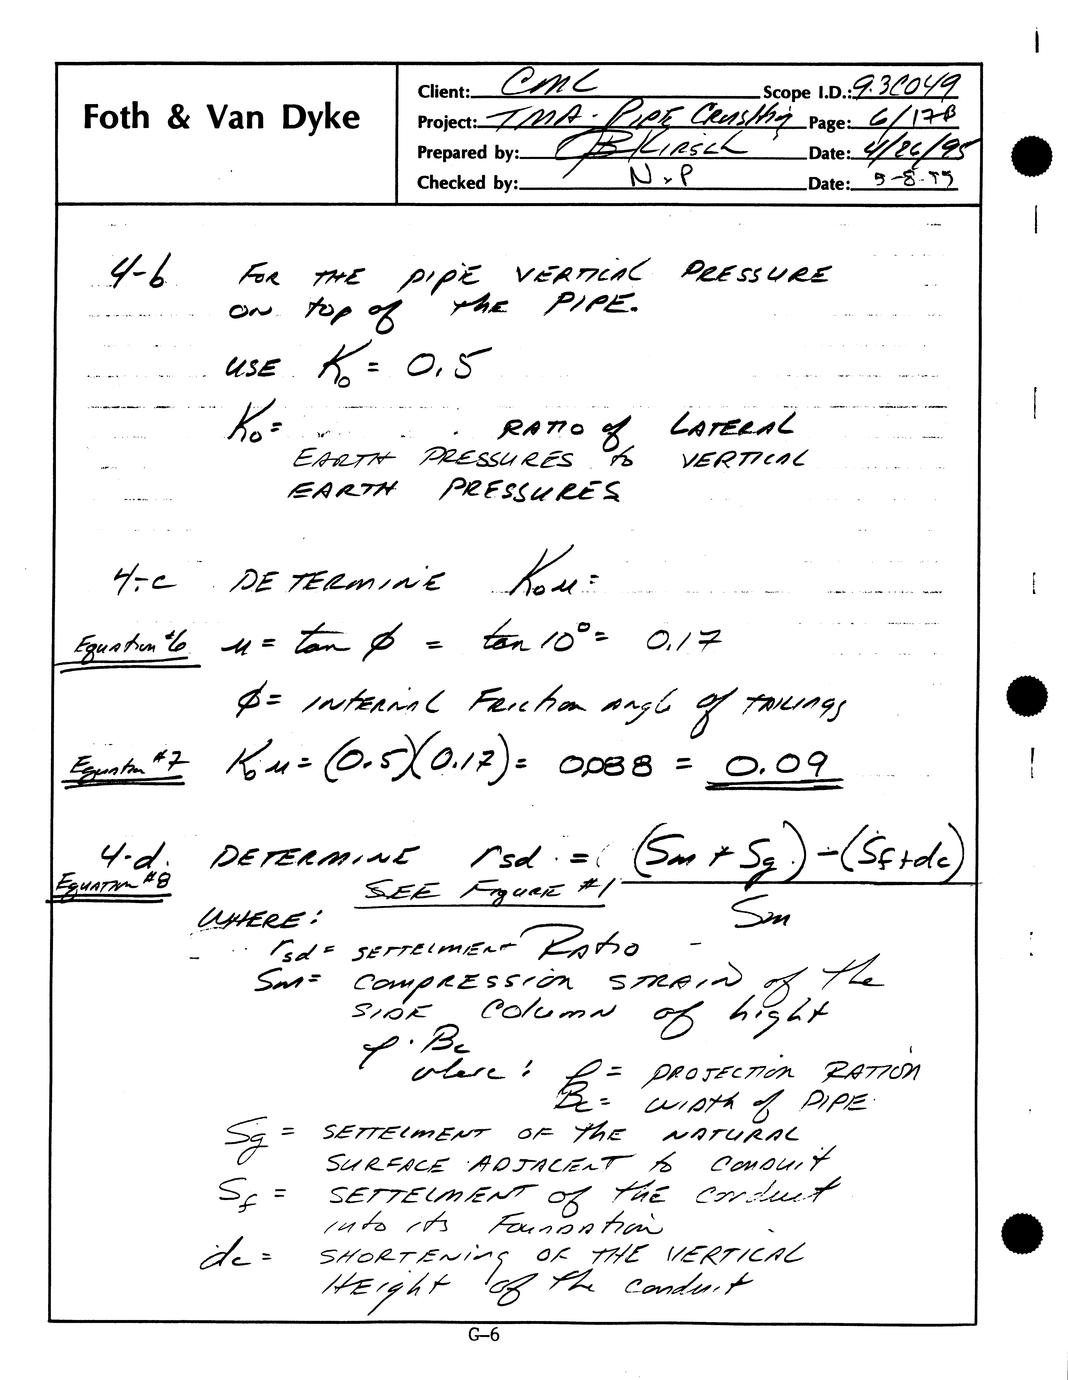 Foth & Van Dyke
Client: CMC Scope I.D.: 93C049
Project: TMA - PIPE Crushing Page: 6/17B
Prepared by: B KIRSCH Date: 4/26/95
Checked by: N.P Date: 5-8-95
4-b FOR THE PIPE VERTICAL PRESSURE
ON top of the PIPE.
USE K₀ = 0.5
K₀ = RATIO of LATERAL
EARTH PRESSURES to VERTICAL
EARTH PRESSURES
4-c DETERMINE K₀u =
Equation #6 u = tan ϕ = tan 10° = 0.17
ϕ = INTERNAL Friction angle of TAILINGS
Equation #7 K₀u = (0.5)(0.17) = 0.088 = 0.09
4-d. DETERMINE rsd = (Sm + Sg) - (Sf + dc)
Equation #8 SEE Figure #1 Sm
WHERE:
rsd = SETTELMENT RATIO -
Sm = COMPRESSION STRAIN of the
SIDE COLUMN of hight
ρ · Bc
where: ρ = PROJECTION RATION
Bc = WIDTH of PIPE
Sg = SETTELMENT OF THE NATURAL
SURFACE ADJACENT to CONDUIT
Sf = SETTELMENT of THE Conduit
into its Foundation
dc = SHORTENING OF THE VERTICAL
HEIGHT of the conduit
G-6